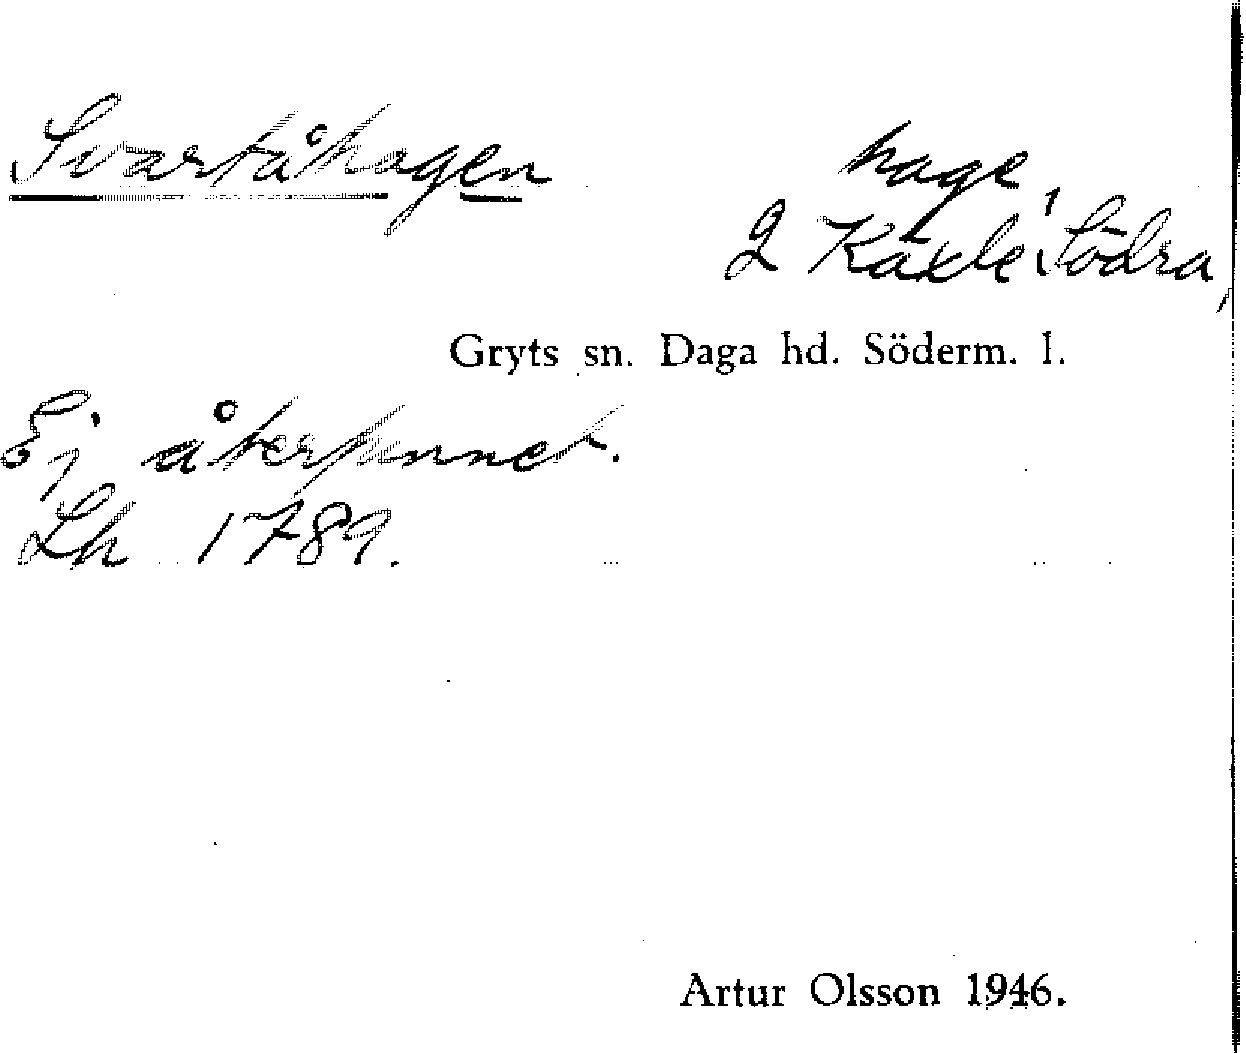 Svartåhagen
hage
2 Käxle, Södra,
Gryts sn. Daga hd. Söderm. l.
Ej återfunnet.
Lh 1789.
Artur Olsson 1946.